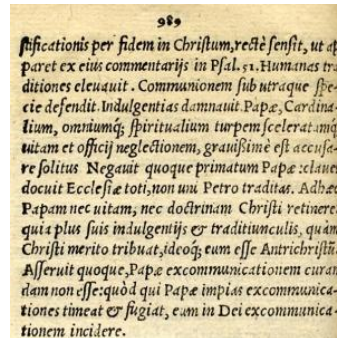 989
ſtificationis per fidem in Chriſtum, rectè ſenſit, ut ap
paret ex eius commentarijs in Pſal. 51. Humanas tra
ditiones eleuauit. Communionem ſub utraque ſpe-
cie defendit. Indulgentias damnauit. Papæ, Cardina
lium, omniumq; ſpiritualium turpem ſceleratamq;
uitam et officij neglectionem, grauißimè eſt accuſa-
re ſolitus Negauit quoque primatum Papæ: claues
docuit Eccleſiæ toti, non uni Petro traditas. Adhæc
Papam nec uitam, nec doctrinam Chriſti retinere:
quia plus ſuis indulgentijs & traditiunculis, quàm
Chriſti merito tribuat, ideoq; eum eſſe Antichriſtū.
Aſſeruit quoque, Papæ excommunicationem curan
dam non eſſe: quòd qui Papæ impias excommunica-
tiones timeat & fugiat, eum in Dei excommunica-
tionem incidere.